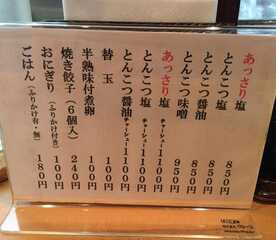 あっさり塩 850円
とんこつ塩 850円
とんこつ醤油 850円
とんこつ味噌 950円
あっさり塩チャーシュー 1100円
とんこつ塩チャーシュー 1100円
とんこつ醤油チャーシュー 1100円
替玉 100円
半熟味付煮卵 100円
焼き餃子（6個入） 240円
おにぎり（ふりかけ付き） 100円
ごはん（ふりかけ有・無） 180円